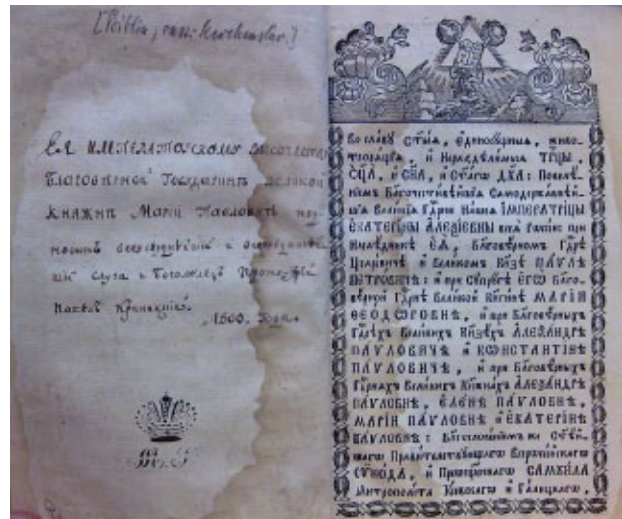 [Biblia, russ.-kirchenslav.]
Ея Императорскому Высочеству
Благоверной Государыне Великой
Княжне Марии Павловне
всеусерднейший и
слуга и Богомолец
Павел Криницкий.
1800. Года.
Во славу ст҃ыѧ, єдиносꙋщныѧ, живо-
творѧщїѧ, и҆ нераздѣлимыѧ трⷪ҇цы,
Ѻ҆ц҃а, и҆ сн҃а, и҆ ст҃агѡ дх҃а: Повелѣ-
нїемъ Бл҃гочестивѣйшїѧ Самодержавнѣй-
шїѧ Великїѧ Гдⷭ҇рни нашеѧ ІМПЕРАТРИЦЫ
ЕКАТЕРИНЫ АЛЕѮІЕВНЫ всеѧ Рⷪ҇ссїи: при
наслѣдникѣ Еѧ̀, Бл҃говѣрномъ Гдⷭ҇рѣ
Цесаревичѣ и҆ Великомъ Кнѧзѣ ПАѴЛѢ
ПЕТРОВИЧѢ: и҆ при Сꙋпрꙋгѣ ЕГѠ̀ Бл҃го-
вѣрной Гдⷭ҇рнѣ Великой Кнѧгинѣ МАРІИ
ѲЕОДѠРОВНѢ, и҆ при Бл҃говѣрныхъ
Гдⷭ҇рѣхъ Великихъ Кнѧзѣхъ АЛЕѮАНДРѢ
ПАѴЛОВИЧѢ и҆ КѠНСТАНТІНѢ
ПАѴЛОВИЧѢ, и҆ при Бл҃говѣрныхъ
Гдⷭ҇рнѧхъ Великихъ Кнѧжнахъ АЛЕѮАНДРѢ
ПАѴЛОВНѢ, ЕЛЕНѢ ПАѴЛОВНѢ,
МАРІИ ПАѴЛОВНѢ и҆ ЕКАТЕРІНѢ
ПАѴЛОВНѢ: Бл҃гословенїемъ же Ст҃ѣй-
шагѡ Правителствꙋющагѡ Всерⷪ҇ссїйскагѡ
СѴНОДА, и҆ Прешⷭ҇щеннагѡ САМꙊИЛА
Митрополита Кїевскагѡ и҆ Галицкагѡ,